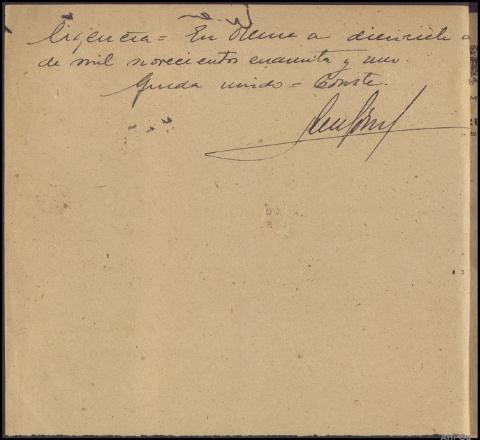 ligencia = En Orense a diecisiete
de mil novecientos cuarenta y uno.
Queda unido = Conste.